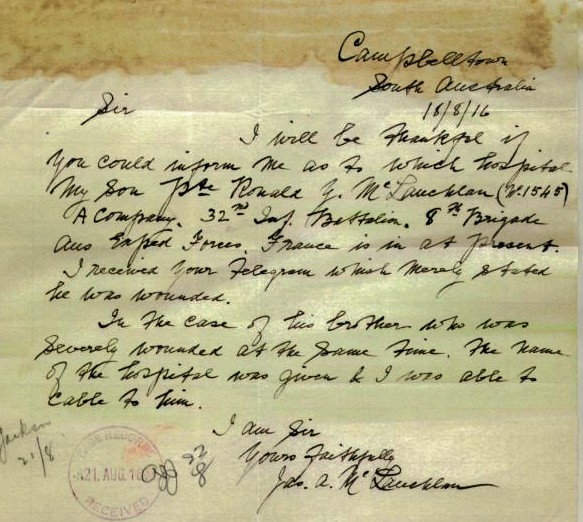 Campbelltown
South Australia
18/8/16
Sir
I will be thankful if
you could inform me as to which hospital
My Son Pte Ronald G. McLauchlan (No. 1545)
A Company. 32nd Inf. Battalion. 8th Brigade
Aus Exped Forces. France is in at present.
I received your Telegram which merely stated
he was wounded.
In the case of his brother who was
severely wounded at the same time. The name
of the hospital was given & I was able to
cable to him.
I am Sir
Yours faithfully
Jas. A. McLauchlan
21/8
RECORDS
21. AUG. 16
RECEIVED
22/8